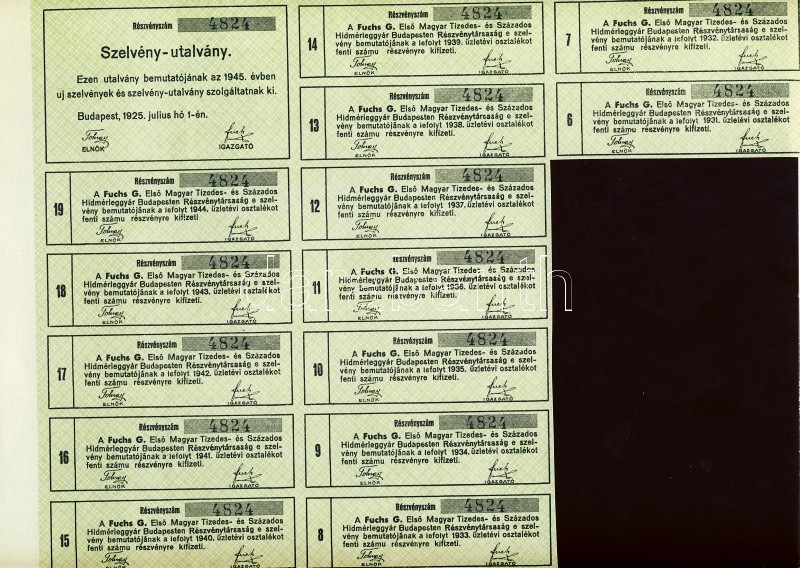 Részvényszám 4824
Szelvény-utalvány.
Ezen utalvány bemutatójának az 1945. évben
uj szelvények és szelvény-utalvány szolgáltatnak ki.
Budapest, 1925. julius hó 1-én.
ELNÖK IGAZGATÓ
19
Részvényszám 4824
A Fuchs G. Első Magyar Tizedes- és Százados
Hidmérleggyár Budapesten Részvénytársaság e szel-
vény bemutatójának a lefolyt 1944. üzletévi osztalékot
fenti számu részvényre kifizeti.
ELNÖK IGAZGATÓ
18
Részvényszám 4824
A Fuchs G. Első Magyar Tizedes- és Százados
Hidmérleggyár Budapesten Részvénytársaság e szel-
vény bemutatójának a lefolyt 1943. üzletévi osztalékot
fenti számu részvényre kifizeti.
ELNÖK IGAZGATÓ
17
Részvényszám 4824
A Fuchs G. Első Magyar Tizedes- és Százados
Hidmérleggyár Budapesten Részvénytársaság e szel-
vény bemutatójának a lefolyt 1942. üzletévi osztalékot
fenti számu részvényre kifizeti.
ELNÖK IGAZGATÓ
16
Részvényszám 4824
A Fuchs G. Első Magyar Tizedes- és Százados
Hidmérleggyár Budapesten Részvénytársaság e szel-
vény bemutatójának a lefolyt 1941. üzletévi osztalékot
fenti számu részvényre kifizeti.
ELNÖK IGAZGATÓ
15
Részvényszám 4824
A Fuchs G. Első Magyar Tizedes- és Százados
Hidmérleggyár Budapesten Részvénytársaság e szel-
vény bemutatójának a lefolyt 1940. üzletévi osztalékot
fenti számu részvényre kifizeti.
ELNÖK IGAZGATÓ
14
Részvényszám 4824
A Fuchs G. Első Magyar Tizedes- és Százados
Hidmérleggyár Budapesten Részvénytársaság e szel-
vény bemutatójának a lefolyt 1939. üzletévi osztalékot
fenti számu részvényre kifizeti.
ELNÖK IGAZGATÓ
13
Részvényszám 4824
A Fuchs G. Első Magyar Tizedes- és Százados
Hidmérleggyár Budapesten Részvénytársaság e szel-
vény bemutatójának a lefolyt 1938. üzletévi osztalékot
fenti számu részvényre kifizeti.
ELNÖK IGAZGATÓ
12
Részvényszám 4824
A Fuchs G. Első Magyar Tizedes- és Százados
Hidmérleggyár Budapesten Részvénytársaság e szel-
vény bemutatójának a lefolyt 1937. üzletévi osztalékot
fenti számu részvényre kifizeti.
ELNÖK IGAZGATÓ
11
Részvényszám 4824
A Fuchs G. Első Magyar Tizedes- és Százados
Hidmérleggyár Budapesten Részvénytársaság e szel-
vény bemutatójának a lefolyt 1936. üzletévi osztalékot
fenti számu részvényre kifizeti.
ELNÖK IGAZGATÓ
10
Részvényszám 4824
A Fuchs G. Első Magyar Tizedes- és Százados
Hidmérleggyár Budapesten Részvénytársaság e szel-
vény bemutatójának a lefolyt 1935. üzletévi osztalékot
fenti számu részvényre kifizeti.
ELNÖK IGAZGATÓ
9
Részvényszám 4824
A Fuchs G. Első Magyar Tizedes- és Százados
Hidmérleggyár Budapesten Részvénytársaság e szel-
vény bemutatójának a lefolyt 1934. üzletévi osztalékot
fenti számu részvényre kifizeti.
ELNÖK IGAZGATÓ
8
Részvényszám 4824
A Fuchs G. Első Magyar Tizedes- és Százados
Hidmérleggyár Budapesten Részvénytársaság e szel-
vény bemutatójának a lefolyt 1933. üzletévi osztalékot
fenti számu részvényre kifizeti.
ELNÖK IGAZGATÓ
7
Részvényszám 4824
A Fuchs G. Első Magyar Tizedes- és Százados
Hidmérleggyár Budapesten Részvénytársaság e szel-
vény bemutatójának a lefolyt 1932. üzletévi osztalékot
fenti számu részvényre kifizeti.
ELNÖK IGAZGATÓ
6
Részvényszám 4824
A Fuchs G. Első Magyar Tizedes- és Százados
Hidmérleggyár Budapesten Részvénytársaság e szel-
vény bemutatójának a lefolyt 1931. üzletévi osztalékot
fenti számu részvényre kifizeti.
ELNÖK IGAZGATÓ